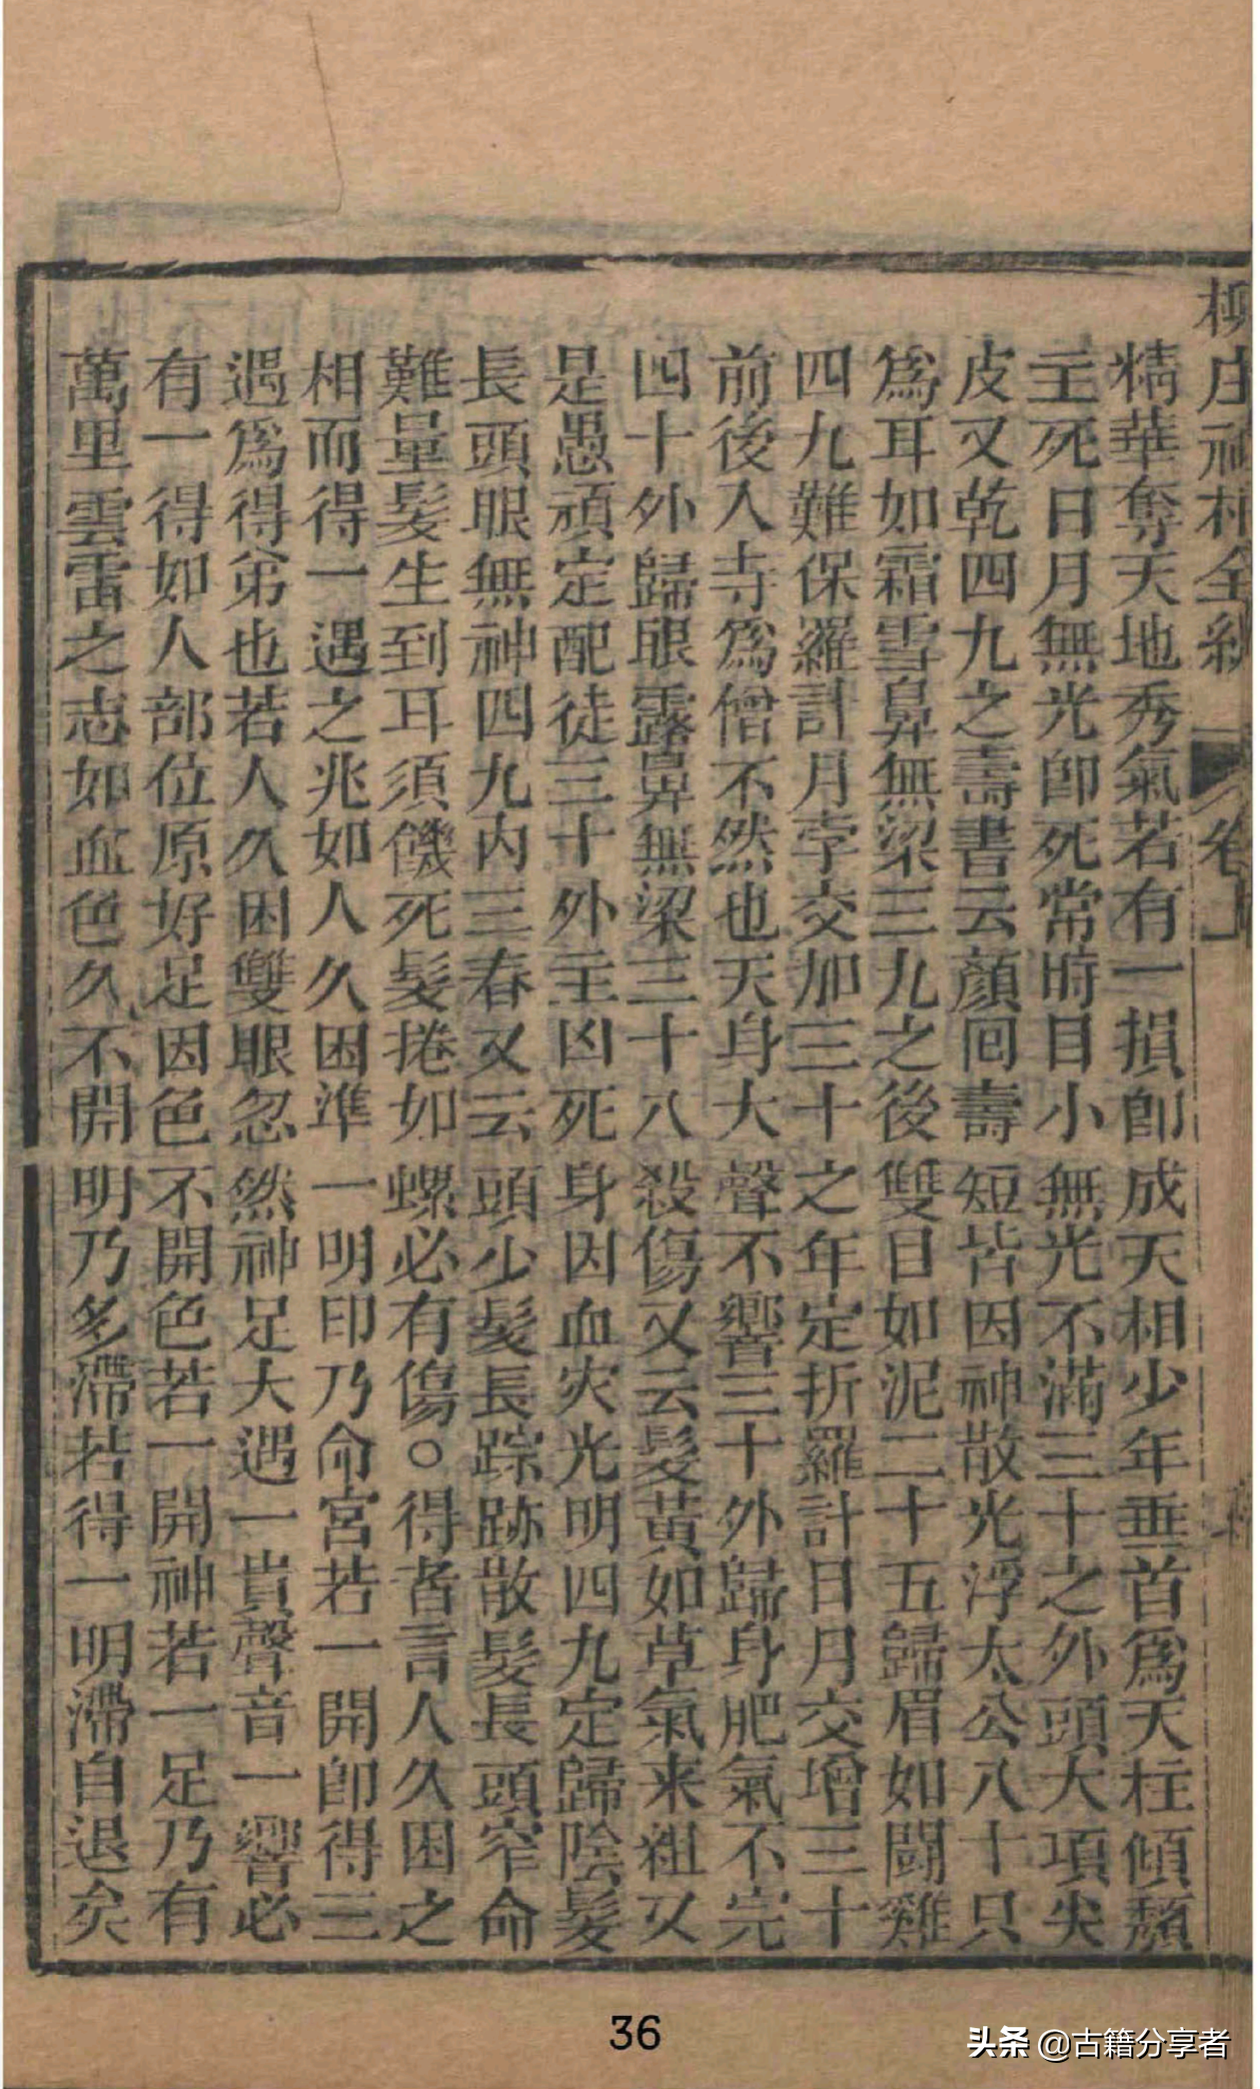 柳庄神相全編 卷上
精華奪天地秀氣若有一損卽成天相少年垂首爲天柱傾頽
主死日月無光卽死常時目小無光不滿三十之外頭大項尖
皮又乾四九之壽書云顏囘壽短皆因神散光浮太公八十只
爲耳如霜雪鼻無梁三九之後雙日如泥二十五歸眉如闘雞
四九難保羅計月孛交加三十之年定折羅計日月交增三十
前後入寺爲僧不然也夭身大聲不響三十外歸身肥氣不完
四十外歸眼露鼻無梁三十八殺傷又云髮黃如草氣来粗又
是愚頑定配徒三十外主凶死身因血灾光明四九定歸陰髮
長頭眼無神四九内三春又云頭少髮長踪跡散髮長頭窄命
難量髮生到耳須僟死髮捲如螺必有傷○得者言人久困之
相而得一遇之兆如人久困準一明印乃命宮若一開卽得三
遇爲得第也若人久困雙眼忽然神足大遇一貴聲音一響必
有一得如人部位原好足因色不開色若一開神若一足乃有
萬里雲雷之志如血色久不開明乃多滯若得一明滯自退矣
36
头条 @古籍分享者